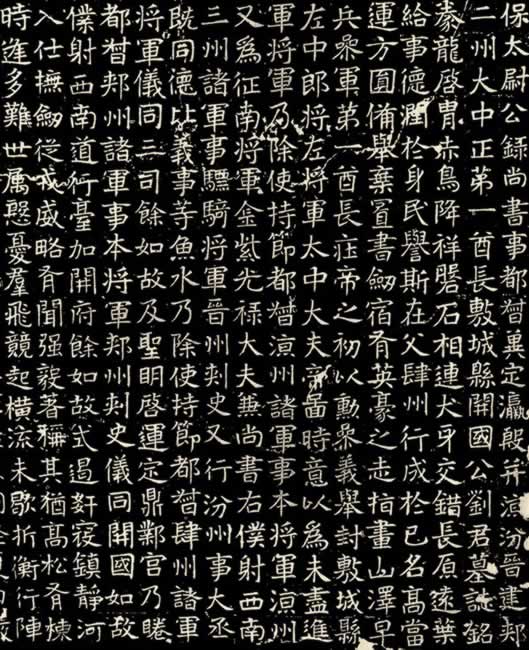 保太尉公錄尚書事都督冀定瀛殷并涼汾晉建郟
二州大中正第一酋長敷城縣開國公劉君墓誌銘
豢龍啟胄赤烏降祥磐石相連犬牙交錯長原遠葉
給事德潤於身民譽斯在父肆州行成於已名高當
運方圓備舉棄置書劒宿有英豪之志指畫山澤早
兵叅軍第一酋長莊帝之初以勳叅義舉封敷城縣
左中郎將左將軍太中大夫帝啚時意以為未盡進
軍將軍乃除使持節都督涼州諸軍事本將軍涼州
又為征南將軍金紫光祿大夫兼尚書右僕射西南
三州諸軍事驃騎將軍晉州刺史又行汾州事大丞
既同德比義事等魚水乃除使持節都督肆州諸軍
將軍儀同三司餘如故及聖明啓運定鼎鄴宮乃睠
都督郟州諸軍事本將軍郟州刺史儀同開國如故
僕射西南道行臺加開府餘如故式遏姧寇鎮靜河
入仕撫劒從戎威略有聞强毅著稱其猶高松有棟
時逢多難世屬慇憂羣飛競起橫流未歇折衝行陣